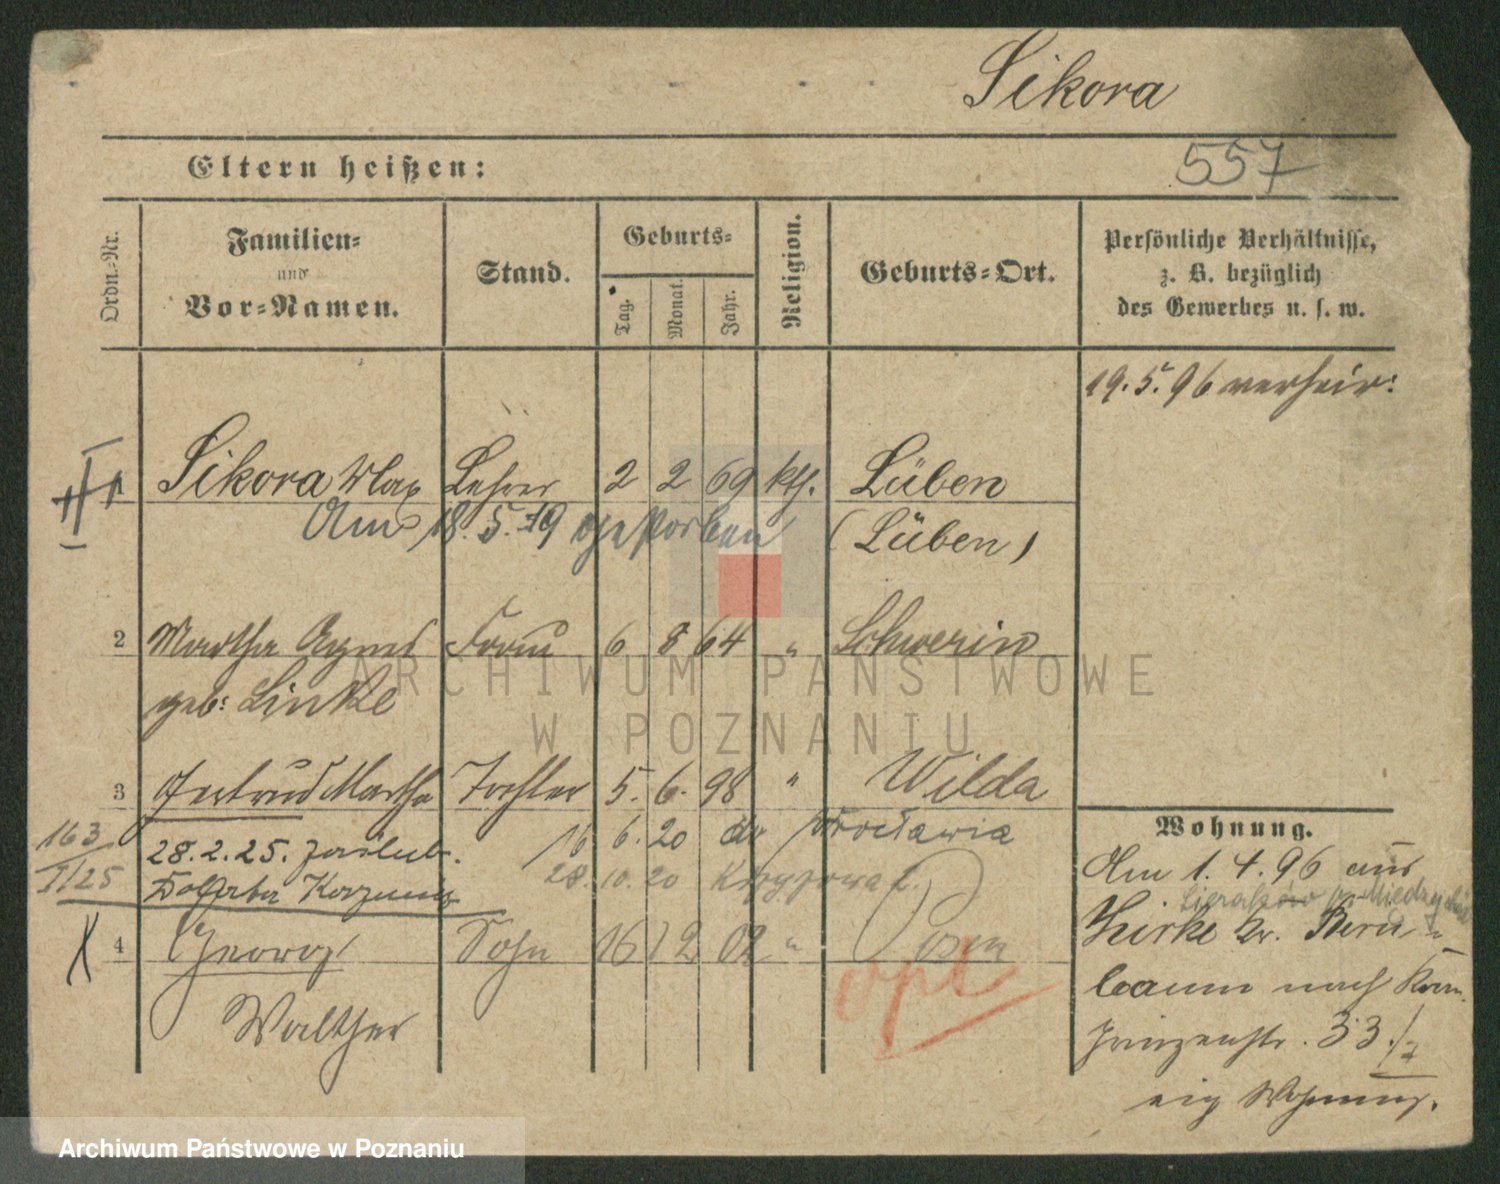 Sikora
557
Eltern heißen:
Ordn.-Nr.
Familien-
und
Vor-Namen.
Stand.
Geburts-
Tag.
Monat.
Jahr.
Religion.
Geburts-Ort.
Persönliche Verhältnisse,
z. B. bezüglich
des Gewerbes u. s. w.
19. 5. 96 verheir:
1 Sikora Max Lehrer 2 2 69 kth. Lüben
Am 18. 5. 19 gestorben (Lüben)
2 Martha Agnes Frau 6 8 64 " Schwerin
geb: Linke
3 Gertrud Martha Tochter 5. 6. 98 " Wilda
163
I/25
28. 2. 25.
16 6. 20 do Wrocławia
28. 10. 20
4 Georg Sohn 16 12 02 " Posen
Walther
opt
Wohnung.
Am 1. 4. 96 aus
Sieraków
Zirke Kr. Birn-
baum nach
Prinzenstr. 33.
eig Wohnung.
ARCHIWUM PAŃSTWOWE
W POZNANIU
Archiwum Państwowe w Poznaniu